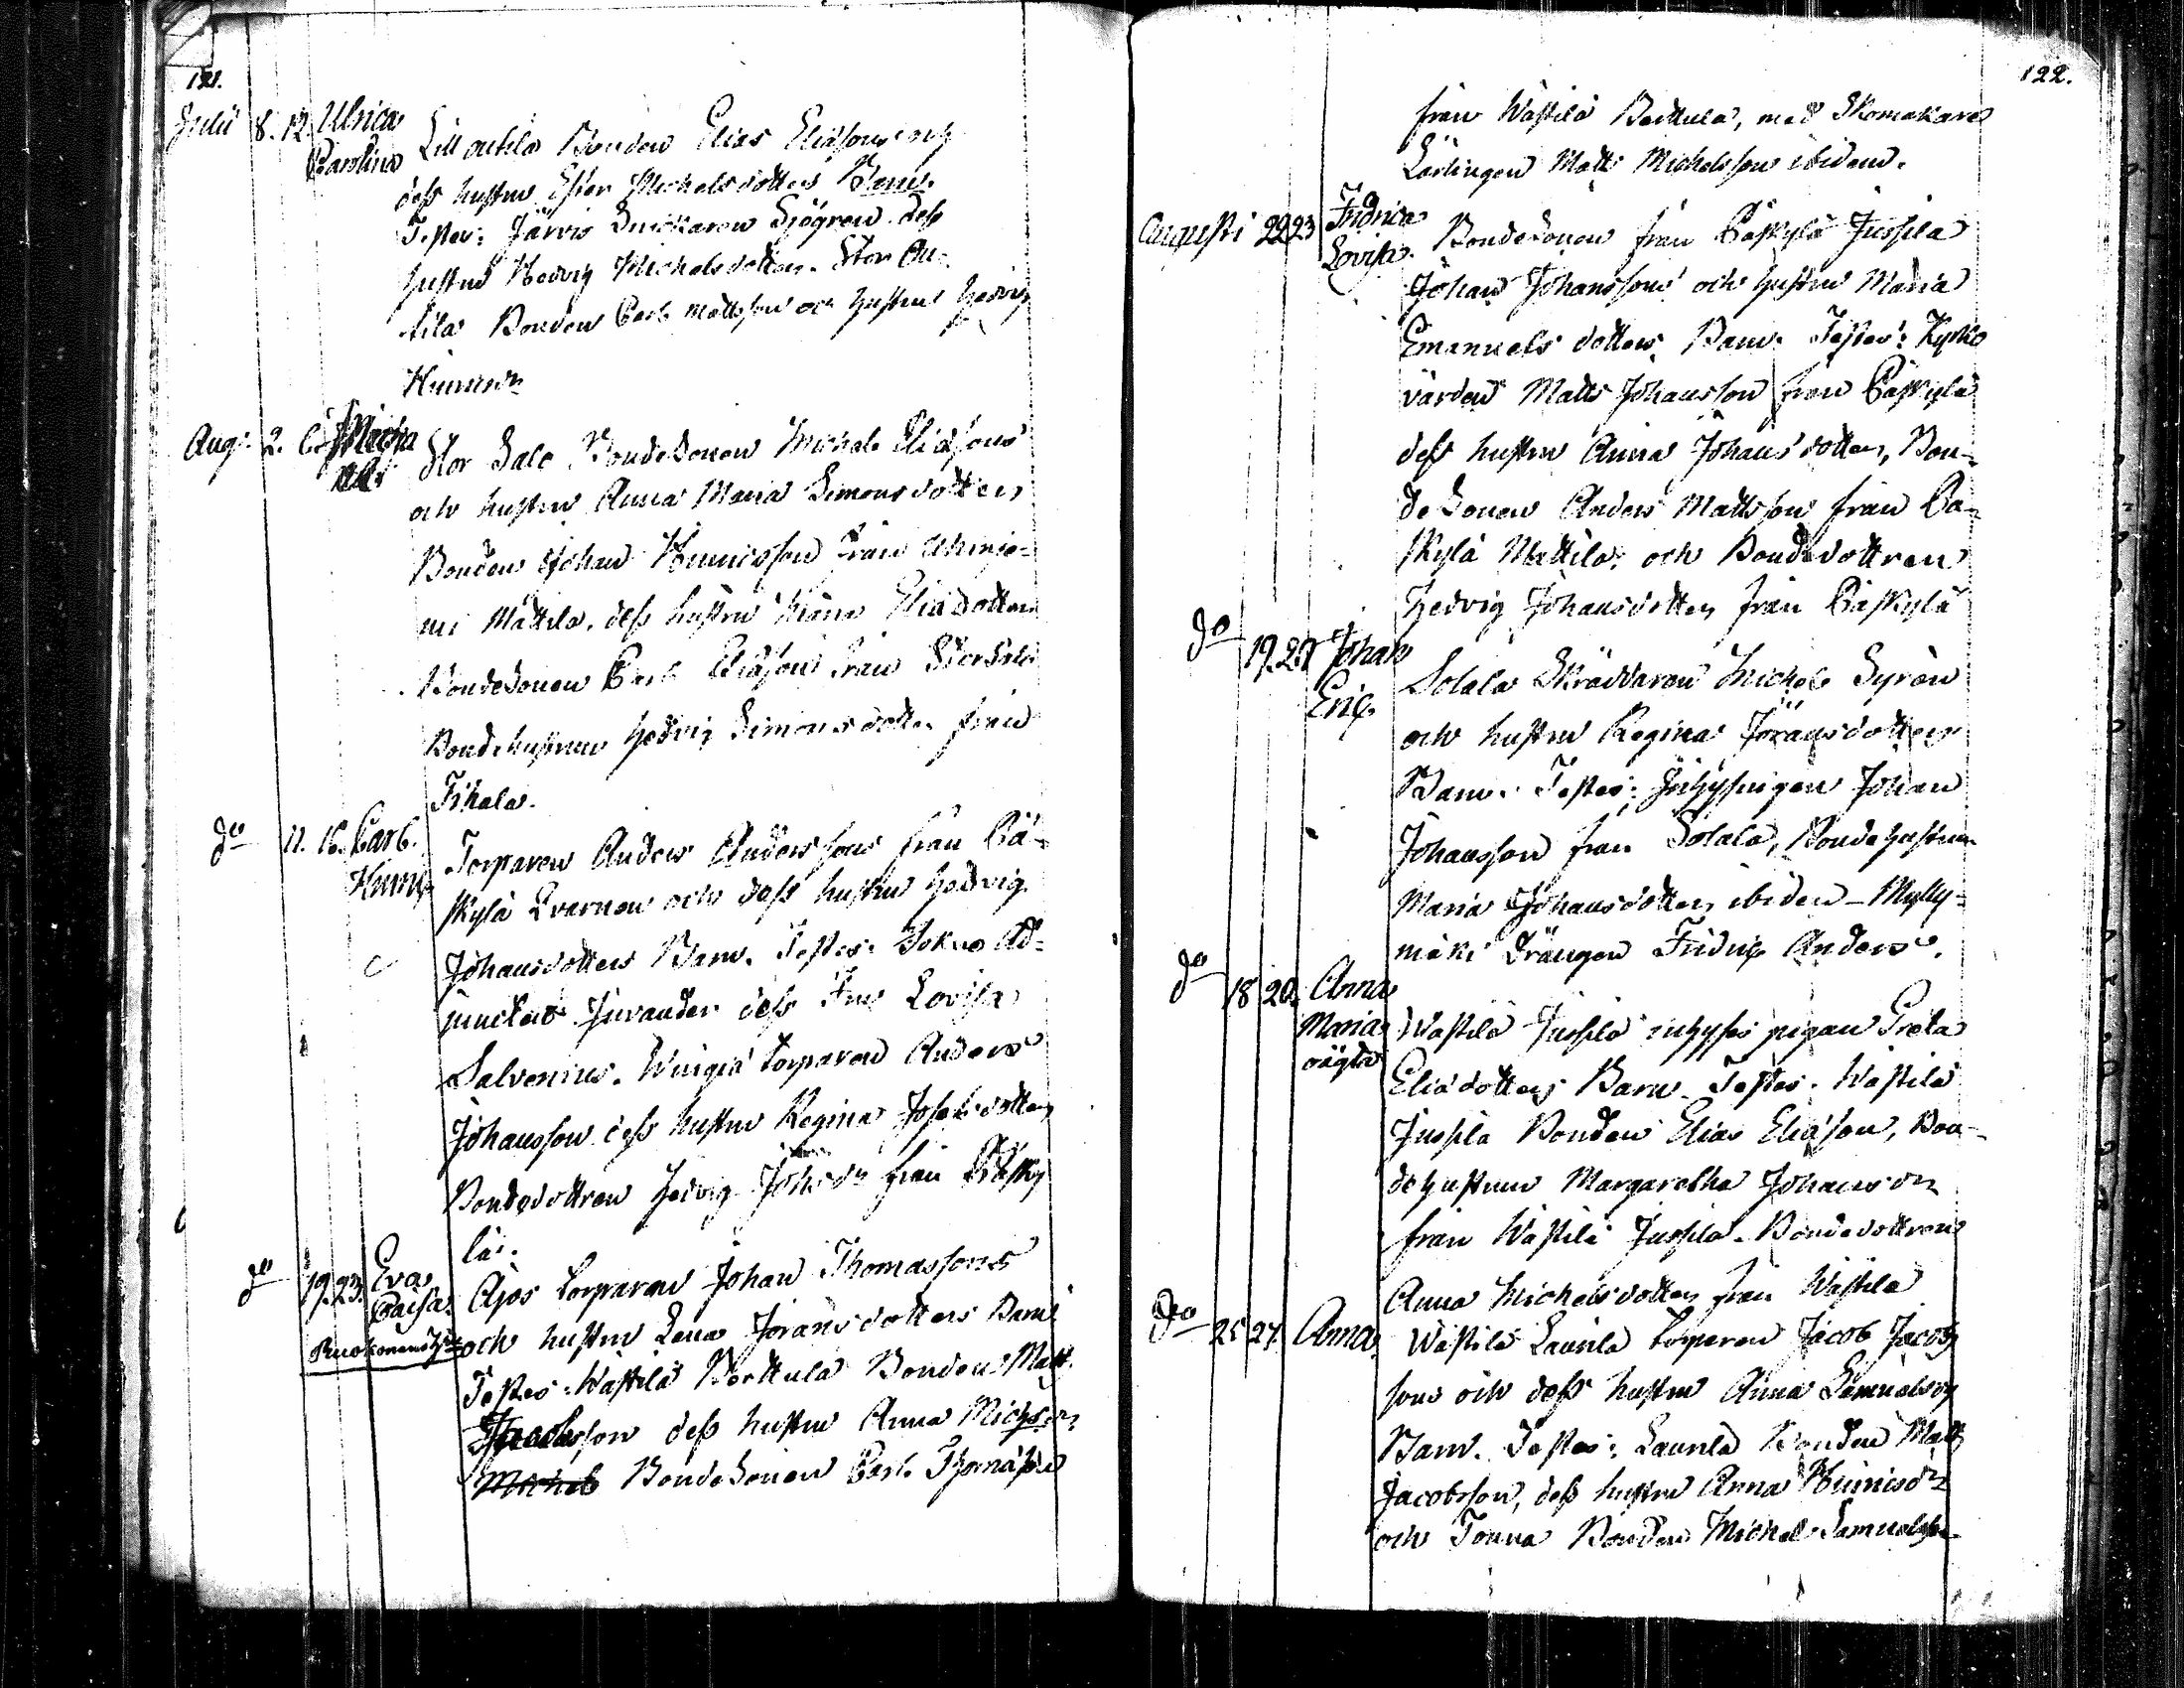 121.
Julii 8. 12. Ulrica Carolina Lill Outila Bonden Elias Eliæsons och
dess hustru Ester Michelsdotters Barn.
Testes: Järvis Snickaren Sjögren dess
hustru Hedvig Michelsdotter. Stor Ou-
tila Bonden Carl Mattsson och hustru Hedvig
Hinricsdr
Aug: 2. Stor Salo Bondesonen Michels Eliæsons
och hustru Anna Maria Simonsdotters
Bonden Johan Hinricsson från
Mattila. dess hustru Eliædotter
Bondesonen Carl Eliæson från Storsalo
Bondehustrun Hedvig Simonsdotter från
Tihala.
do 11. 16. Carl Hinric Torparen Anders Anderssons från Pä-
skylä Qvarnen och dess hustru Hedvig
Johansdotters Barn. Testes: Sokne Ad-
juncten Juvander dess Fru Lovisa
Salvenius. torparen Anders
Johansson dess hustru Regina Josephsdotter
Bondedottren Hedvig Johsdr från Päsky
lä.
do 19. 23. Eva Caisa Ajos torparen Johan Thomassons
Ruokonemi och hustru Lena Jöransdotters Barn
Testes: Wästilä Perttula Bonden Matts
Jacobsson dess hustru Anna Michsdr
Michel Bondesonen Carl Thomasson
122.
från Wästilä Perttula, med Skomakare
Lärlingen Matts Michelsson ibidem.
Augusti 22 23 Fridrica Lovisa. Bondesonen från Päskylä Jussila
Johan Johanssons och hustru Maria
Emanuels dotters Barn. Testes: Kyrko
värden Matts Johansson från Päskylä
dess hustru Anna Johansdotter, Bon-
de Sonen Anders Mattsson från Pä-
skylä Mattila. och Bondedottren
Hedvig Johansdotter från Päskylä
do 19. 20 Johan Eric. Solala Skräddaren Michel Syrén
och hustru Regina Jöransdotters
Barn. Testes: Inhysingen Johan
Johansson från Solala, Bondehustrun
Maria Johansdotter ibidem - Mylly-
mäki Drängen Fridric Anders.
do 18 20. Anna Maria oägta Wästilä Jussila inhyses pigan Greta
Eliædotters Barn. Testes. Wästilä
Jussila Bonden Elias Eliæson, Bon-
dehustrun Margaretha Johansdr
från Wästilä Jussila. Bondedottren
Anna Michelsdotter från Wästilä
do 25 27. Anna. Wästilä Laurila torparen Jacob Jacob
sons och dess hustru Anna Samuelsdr
Barn. Testes: Laurila Bonden Matts
Jacobsson, dess hustru Anna Hinricsdr
och Bonden Michel Samuelsson